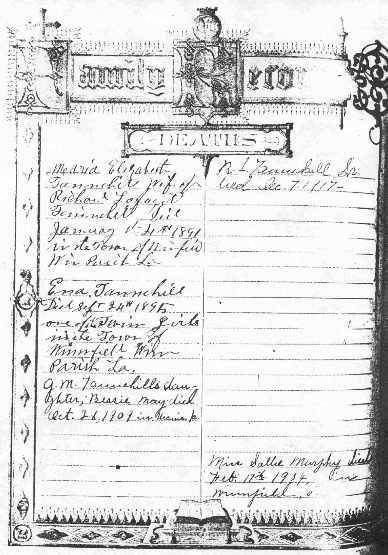 Family Record
DEATHS
Maria Elizabeth
Tannehill wife of
Richard Lafayett
Tannehill Died
January 21st 1891
in the Town of Winfield
Win Parish La
Ena Tannehill
Died Sept 24th 1895
one of the Twin Girls
in the Town of
Winnfield Winn
Parish La.
G. M. Tannehills dau-
ghter, Bessie May died
Oct. 26, 1909 in
R L Tannehill Sr
Died Dec. 7 1917
Miss Sallie Murphy died
Feb. 10th 1934 in
Winnfield